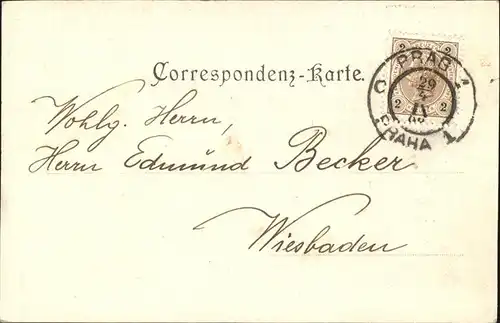 2 2
2 2
PRAG 1
29
4
11
PRAHA 1
Correspondenz-Karte.
Wohlg. Herrn,
Herrn Edmund Becker
Wiesbaden